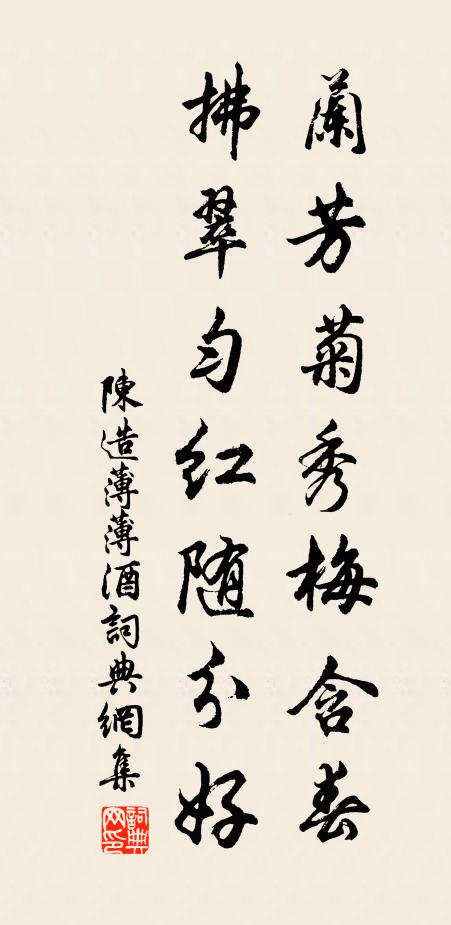 蘭芳菊秀梅含春
拂翠勻紅随分好
陳造薄薄酒詞典網集
詞典网印